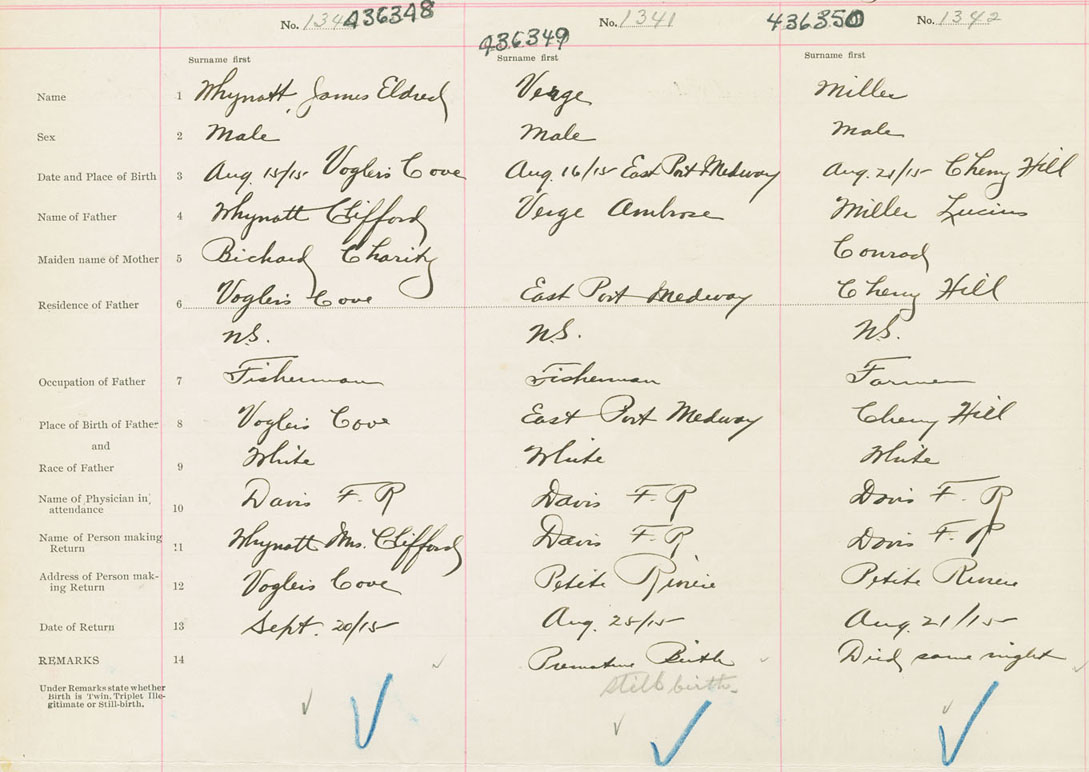 No. 134 436348 No. 1341 436350 No. 1342
436349
Surname first Surname first Surname first
Name 1 Whynott, James Eldred Verge Miller
Sex 2 Male Male Male
Date and Place of Birth 3 Aug. 15/15 Voglers Cove Aug. 16/15 East Port Medway Aug. 21/15 Cherry Hill
Name of Father 4 Whynott Clifford Verge Ambrose Miller Lucius
Maiden name of Mother 5 Bichard Charity Conrad
Residence of Father 6 Voglers Cove East Port Medway Cherry Hill
N.S. N.S. N.S.
Occupation of Father 7 Fisherman Fisherman Farmer
Place of Birth of Father 8 Voglers Cove East Port Medway Cherry Hill
and
Race of Father 9 White White White
Name of Physician in attendance 10 Davis F. R Davis F. R Davis F. R
Name of Person making Return 11 Whynott Mrs. Clifford Davis F. R Davis F. R
Address of Person mak-
ing Return 12 Voglers Cove Petite Riviere Petite Riviere
Date of Return 13 Sept. 20/15 Aug. 25/15 Aug. 21/15
REMARKS 14 Premature Birth Died same night
Under Remarks state whether still birth.
Birth is Twin, Triplet Ille-
gitimate or Still-birth.